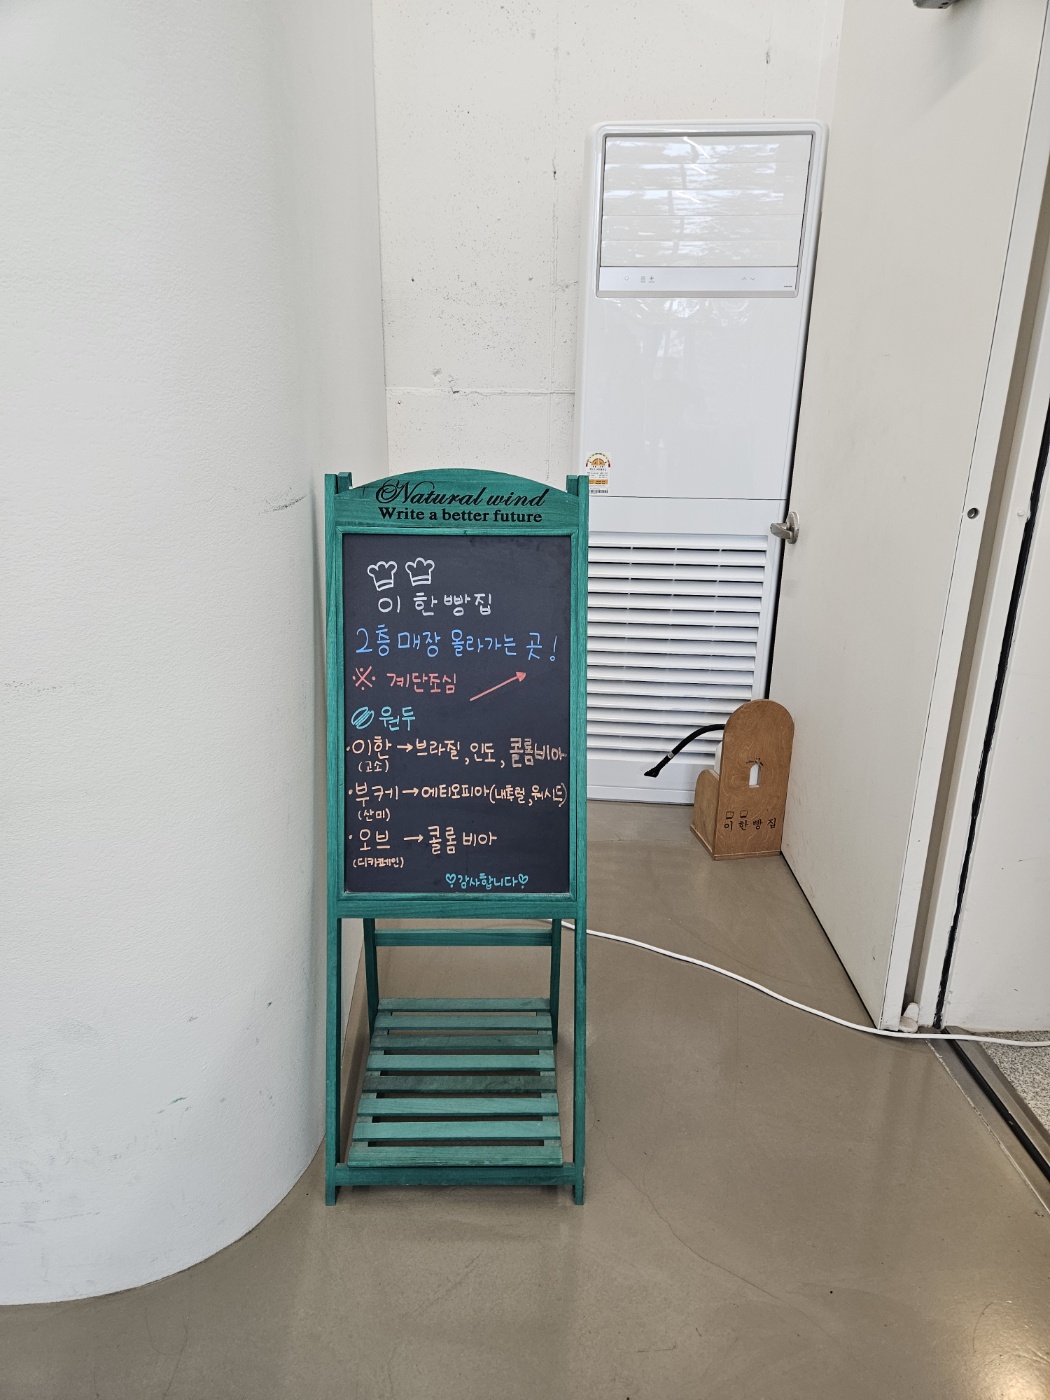 Natural wind
Write a better future
이한빵집
2층 매장 올라가는 곳!
※ 계단조심
원두
·이한→브라질,인도,콜롬비아
(고소)
·부케→에티오피아(내추럴,워시드)
(산미)
·오브→콜롬비아
(디카페인)
♡감사합니다♡
이한빵집